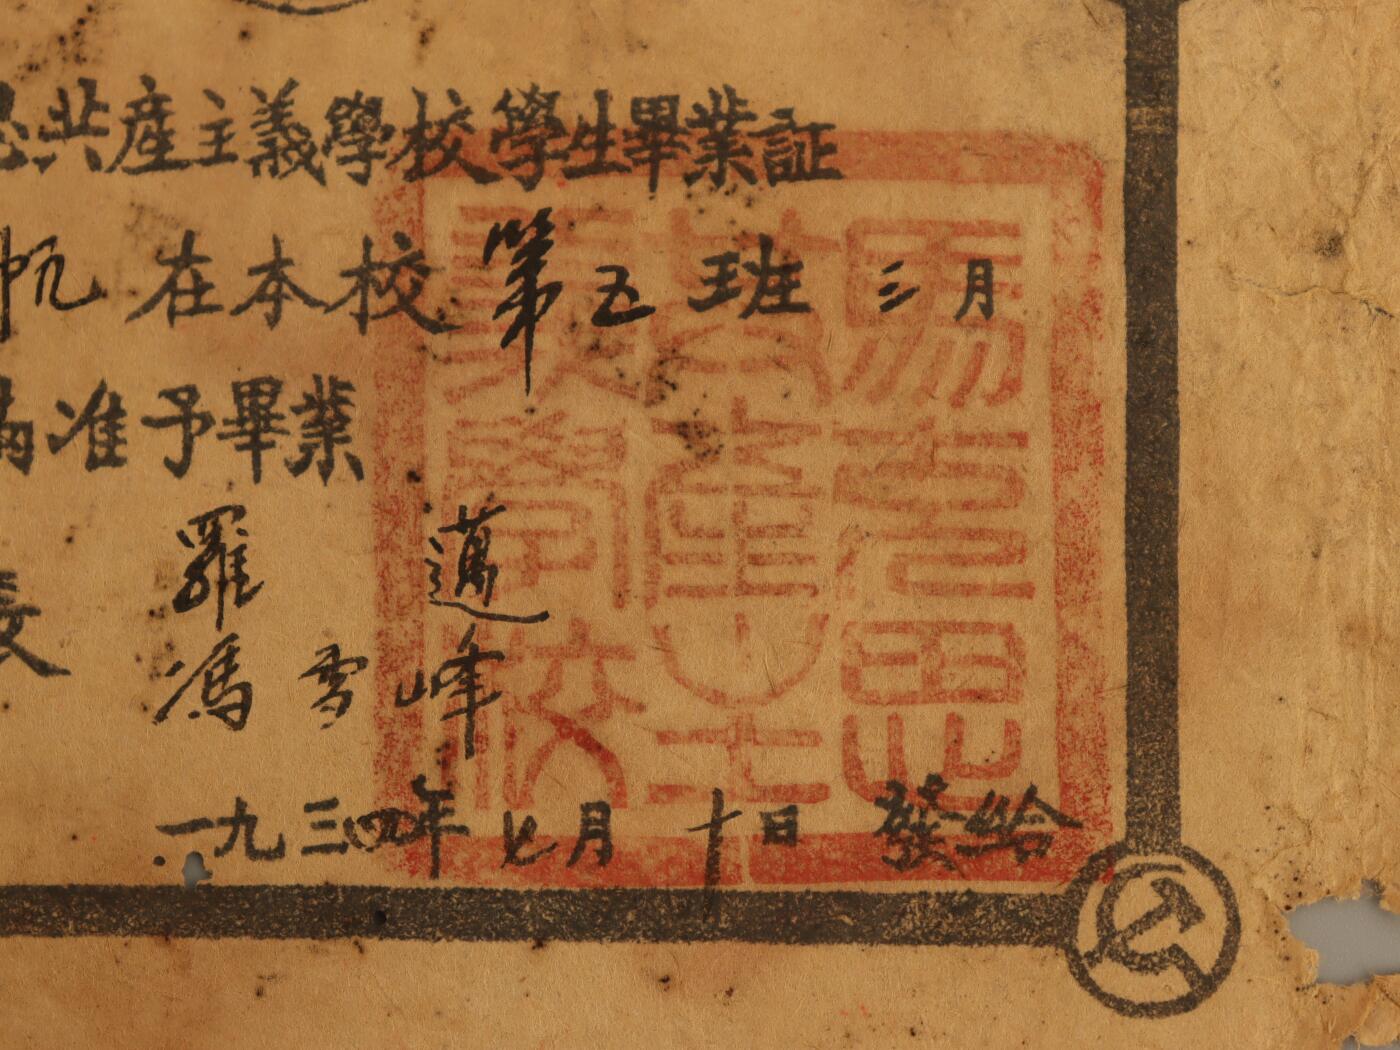 思共產主義學校學生畢業証
帆 在本校第五班三月
滿准予畢業
羅邁
長
馮雪峰
一九三四年七月十日發給
馬克思共產主義學校